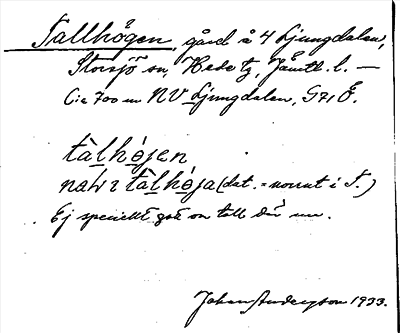 Tallhögen, gård å 4 Ljungdalen,
Storsjö sn, Hede tg, Jämtl. l. —
C:a 700 m NV Ljungdalen, G71 Ö.
tàlhǿjen
nawı tàlhǿja (dat. = norrut i T.)
Ej speciellt gott om tall där nu.
Johan Anderson 1933.